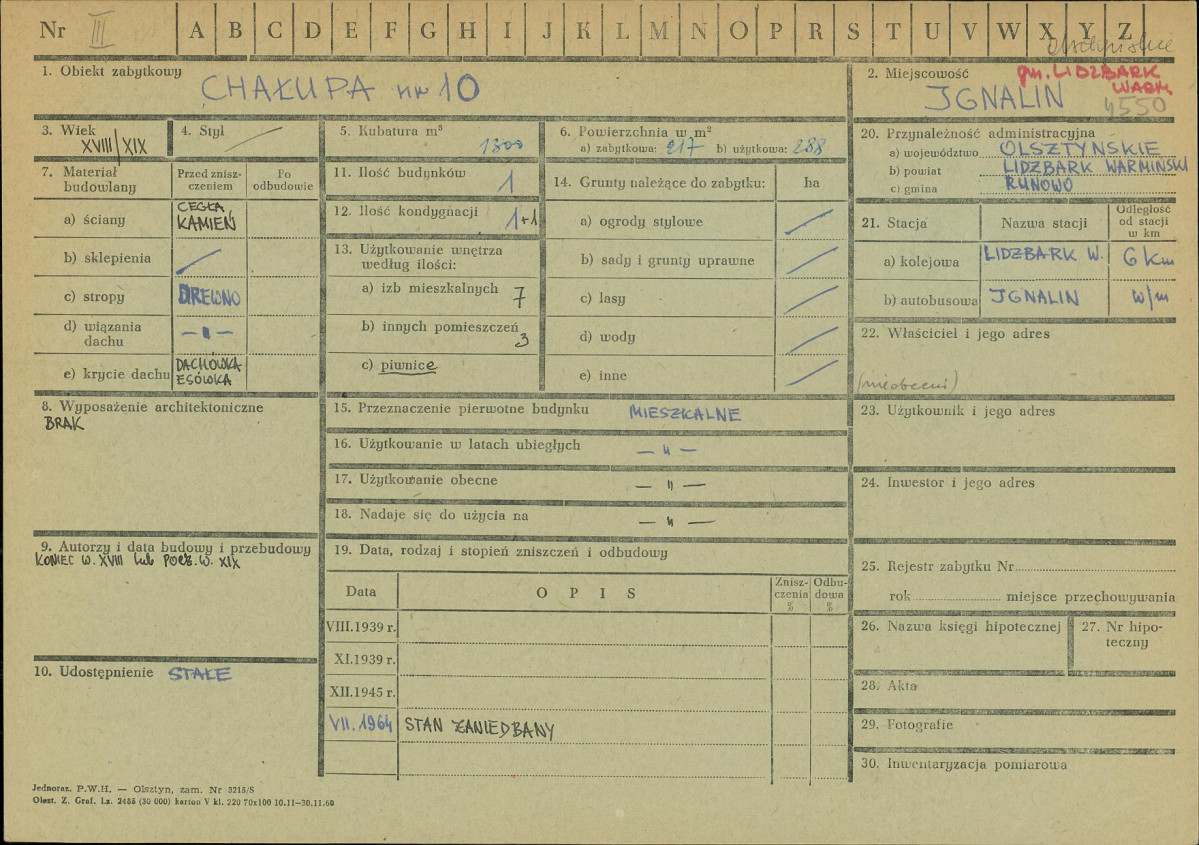 Nr III A B C D E F G H I J K L M N O P R S T U V W X Y Z
1. Obiekt zabytkowy
CHAŁUPA nr 10
2. Miejscowość
gm. LIDZBARK
WARM.
JGNALIN
4550
3. Wiek
XVIII/XIX
4. Styl
5. Kubatura m³
1300
6. Powierzchnia w m²
a) zabytkowa: 217 b) użytkowa: 288
7. Materiał budowlany
Przed zniszczeniem
Po odbudowie
a) ściany CEGŁA KAMIEŃ
b) sklepienia
c) stropy DREWNO
d) wiązania dachu — „ —
e) krycie dachu DACHÓWKA ESÓWKA
8. Wyposażenie architektoniczne
BRAK
9. Autorzy i data budowy i przebudowy
KONIEC W. XVIII lub POCZ. W. XIX
10. Udostępnienie STAŁE
11. Ilość budynków 1
12. Ilość kondygnacji 1+1
13. Użytkowanie wnętrza
według ilości:
a) izb mieszkalnych 7
b) innych pomieszczeń 3
c) piwnice
14. Grunty należące do zabytku: ha
a) ogrody stylowe
b) sady i grunty uprawne
c) lasy
d) wody
e) inne
15. Przeznaczenie pierwotne budynku MIESZKALNE
16. Użytkowanie w latach ubiegłych — „ —
17. Użytkowanie obecne — „ —
18. Nadaje się do użycia na — „ —
19. Data, rodzaj i stopień zniszczeń i odbudowy
Data OPIS Zniszczenia % Odbudowa %
VIII.1939 r.
XI.1939 r.
XII.1945 r.
VII. 1964 STAN ZANIEDBANY
20. Przynależność administracyjna
a) województwo OLSZTYŃSKIE
b) powiat LIDZBARK WARMIŃSKI
c) gmina RUNOWO
21. Stacja Nazwa stacji Odległość od stacji w km
a) kolejowa LIDZBARK W. 6 km
b) autobusowa JGNALIN w/m
22. Właściciel i jego adres
23. Użytkownik i jego adres
24. Inwestor i jego adres
25. Rejestr zabytku Nr
rok miejsce przechowywania
26. Nazwa księgi hipotecznej
27. Nr hipoteczny
28. Akta
29. Fotografie
30. Inwentaryzacja pomiarowa
Jednoraz. P.W.H. — Olsztyn, zam. Nr 3215/S
Olszt. Z. Graf. Lz. 2455 (30 000) karton V kl. 220 70x100 10.11—30.11.60